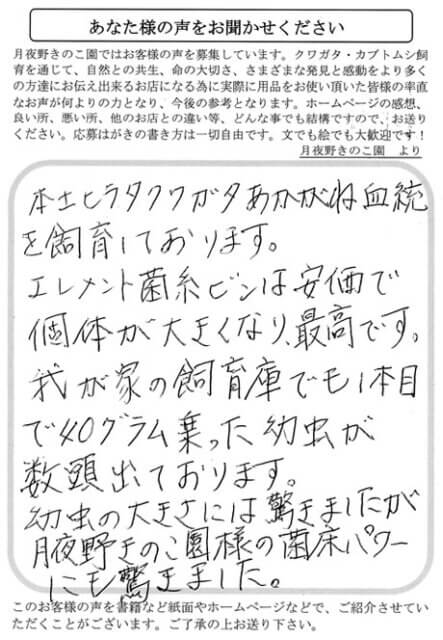 あなた様の声をお聞かせください
月夜野きのこ園ではお客様の声を募集しています。クワガタ・カブトムシ飼
育を通じて、自然との共生、命の大切さ、さまざまな発見と感動をより多く
の方達にお伝え出来るお店になる為に実際に用品をお使い頂いた皆様の率直
なお声が何よりの力となり、今後の参考となります。ホームページの感想、
良い所、悪い所、他のお店との違い等、どんな事でも結構ですので、お送り
ください。応募はがきの書き方は一切自由です。文でも絵でも大歓迎です!
月夜野きのこ園 より
本土ヒラタクワガタあかがね血統
を飼育しております。
エレメント菌糸ビンは安価で
個体が大きくなり、最高です。
我が家の飼育庫でも1本目
で40グラム乗った幼虫が
数頭出ております。
幼虫の大きさには驚きましたが
月夜野きのこ園様の菌床パワー
にも驚きました。
このお客様の声を書籍など紙面やホームページなどで、ご紹介させてい
ただくことがございます。ご了承の上お送り下さい。